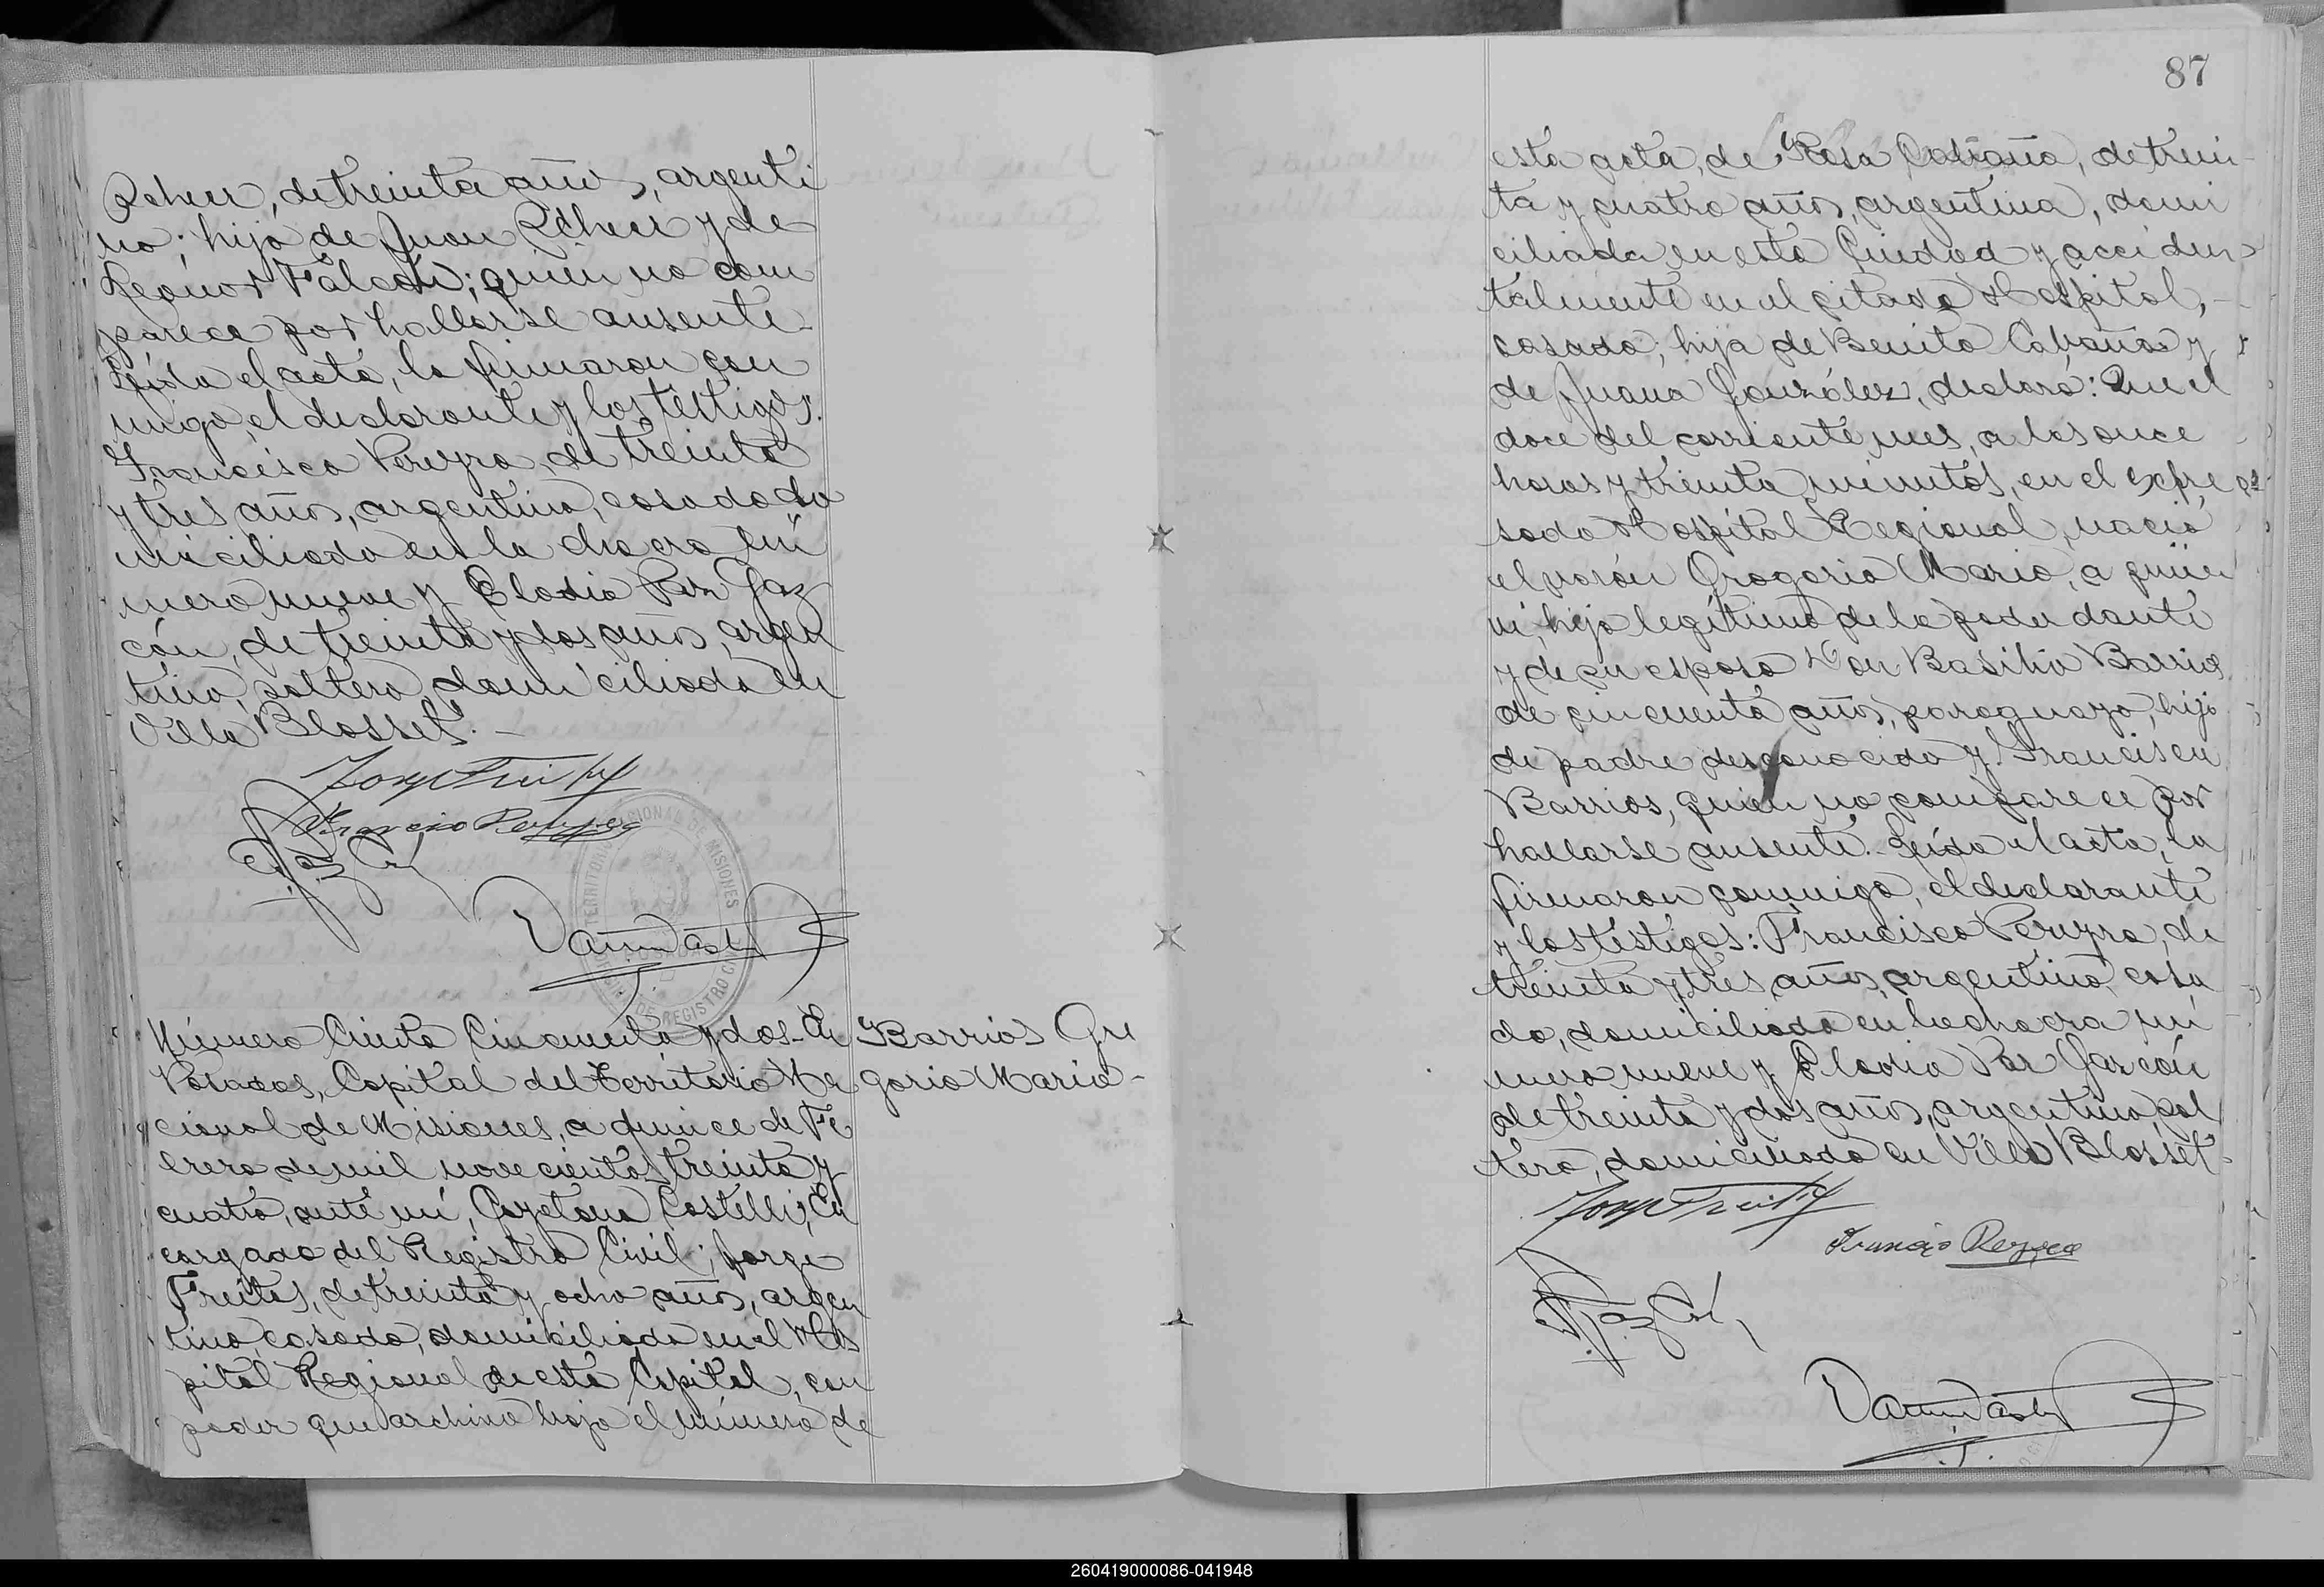 Scherr, de treinta años, argenti
no; hijo de Juan Scherr y de
Leonor Falcón; quien no com
parece por hallarse ausente.
Leída el acta, la firmaron con
migo, el declarante y los testigos:
Francisco Pereyra, de treinta
y tres años, argentino, casado do
miciliado en la chacra nú
mero nueve y Elodio Paz Gaz
cón, de treinta y dos años, argen
tino, soltero, domiciliado en
Villa Blosset.
Jorge Freitas
Francisco Pereyra
TERRITORIO NACIONAL DE MISIONES
POSADAS
REGISTRO CIVIL
Número Ciento Cincuenta y dos- En
Posadas, Capital del Territorio Na
cional de Misiones, a quince de Fe
brero de mil novecientos treinta y
cuatro, ante mí, Cayetano Castelli, En
cargado del Registro Civil; Jorge
Freitas, de treinta y ocho años, argen
tino, casado, domiciliado en el Hos
pital Regional de esta Capital, con
poder que archivo bajo el número de
Barrios Gre
gorio Mario-
87
esta acta, de Rosa Cabaña, de trein
ta y cuatro años, argentina, domi
ciliada en esta Ciudad y acciden
talmente en el citado Hospital,
casada; hija de Benito Cabañas y
de Juana González, declaró: Que el
doce del corriente mes, a las once
horas y treinta minutos, en el expre
sado Hospital Regional, nació
el varón Gregorio Mario, a quien
vi, hijo legítimo de la poder dante
y de su esposo Don Basilio Barrios
de cincuenta años, paraguayo, hijo
de padre desconocido y Francisca
Barrios, quien no comparece por
hallarse ausente. Leída el acta, la
firmaron conmigo, el declarante
y los testigos: Francisco Pereyra, de
treinta y tres años, argentino, casa
do, domiciliado en la chacra nú
mero nueve y Elodio Paz Gazcón
de treinta y dos años, argentino, sol
tero, domiciliado en Villa Blosset-
Jorge Freitas
Francisco Pereyra
260419000086-041948